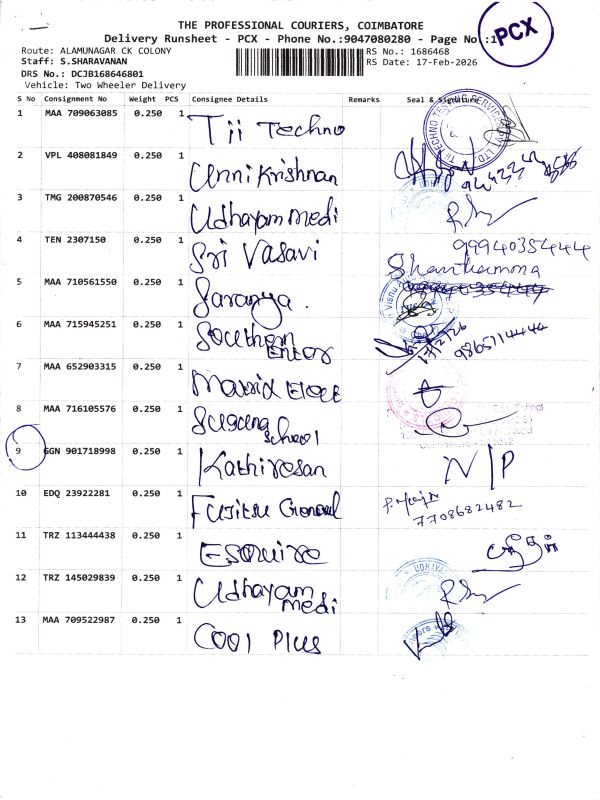 THE PROFESSIONAL COURIERS, COIMBATORE
Delivery Runsheet - PCX - Phone No.:9047080280 - Page No.:1
PCX
Route: ALAMUNAGAR CK COLONY
RS No.: 1686468
Staff: S.SHARAVANAN
RS Date: 17-Feb-2026
DRS No.: DCJB168646801
Vehicle: Two Wheeler Delivery
S No Consignment No Weight PCS Consignee Details Remarks Seal & Signature
1 MAA 709063085 0.250 1 Tii Techno
2 VPL 408081849 0.250 1 Unni Krishnan
3 TMG 200870546 0.250 1 Udhayam medi
4 TEN 2307150 0.250 1 Sri Vasavi 9994035444
Shanthamma
5 MAA 710561550 0.250 1 Saranya.
6 MAA 715945251 0.250 1 Southern Enter 17/2/26 9865114444
7 MAA 652903315 0.250 1 Matrix Elect
8 MAA 716105576 0.250 1 Suguna School
9 GGN 901718998 0.250 1 Kathiresan N/P
10 EDQ 23922281 0.250 1 Fujitsu General 7708682482
11 TRZ 113444438 0.250 1 Esquire
12 TRZ 145029839 0.250 1 Udhayam medi
13 MAA 709522987 0.250 1 Cool Plus